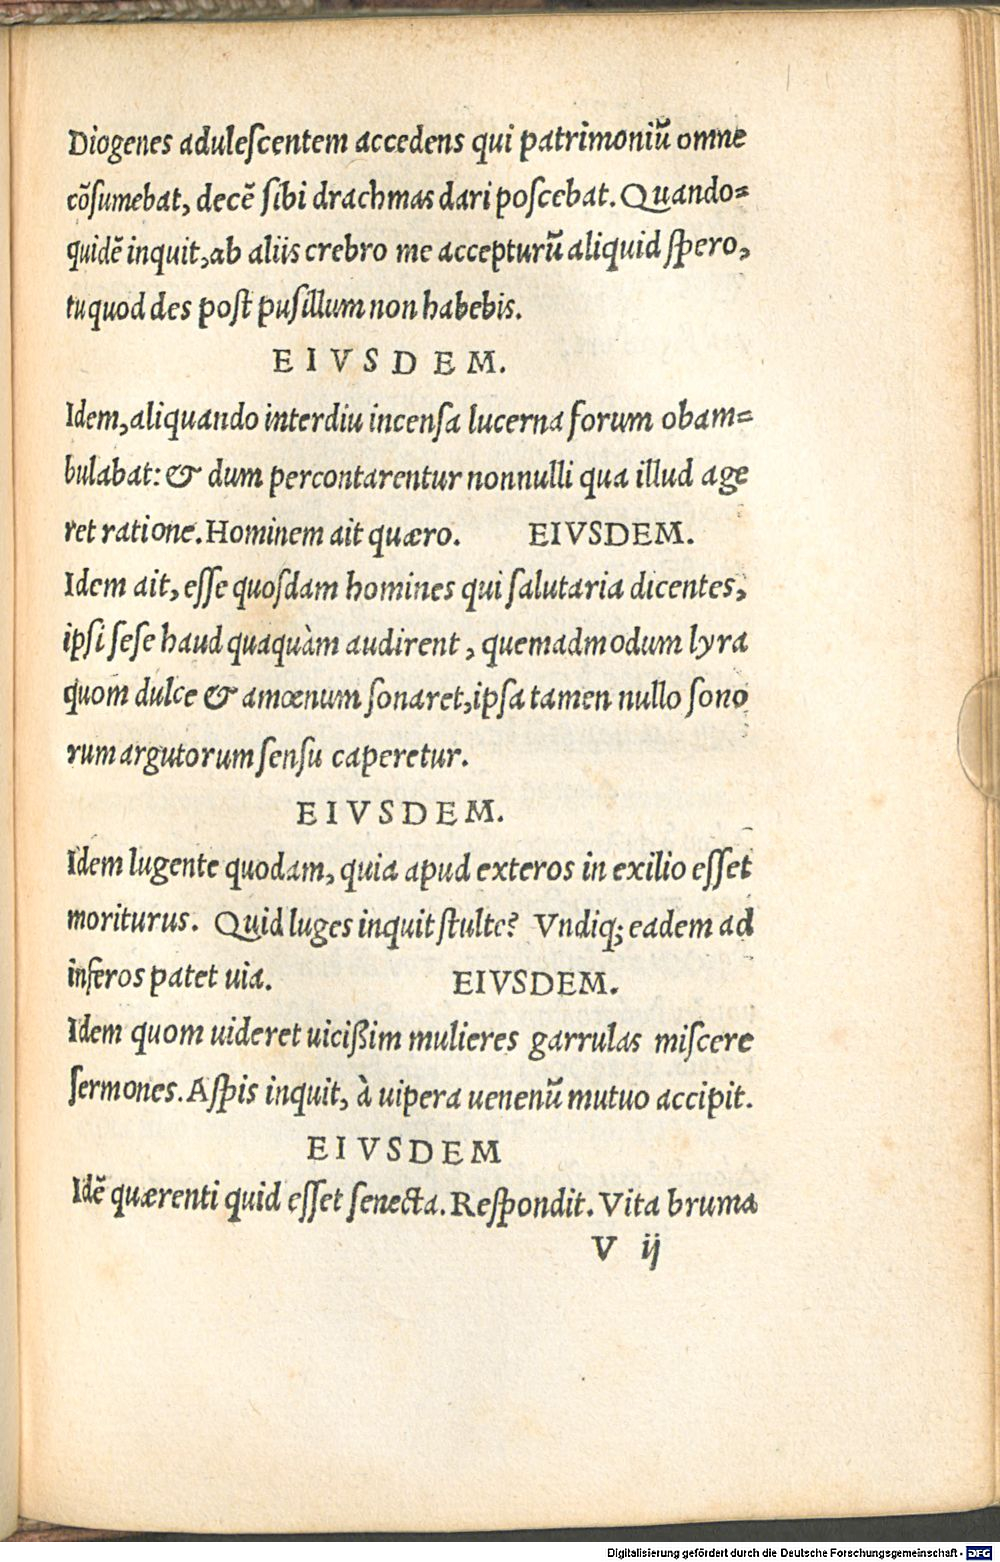 Diogenes aduleſcentem accedens qui patrimoniũ omne
cõſumebat, decẽ ſibi drachmas dari poſcebat. Quando=
quidẽ inquit, ab aliis crebro me accepturũ aliquid ſpero,
tu quod des poſt puſillum non habebis.
EIVSDEM.
Idem, aliquando interdiu incenſa lucerna forum obam=
bulabat: & dum percontarentur nonnulli qua illud age
ret ratione. Hominem ait quæro. EIVSDEM.
Idem ait, eſſe quoſdam homines qui ſalutaria dicentes,
ipſi ſeſe haud quaquàm audirent, quemadmodum lyra
quom dulce & amœnum ſonaret, ipſa tamen nullo ſono
rum argutorum ſenſu caperetur.
EIVSDEM.
Idem lugente quodam, quia apud exteros in exilio eſſet
moriturus. Quid luges inquit ſtulte? Vndiq; eadem ad
inferos patet uia. EIVSDEM.
Idem quom uideret uicißim mulieres garrulas miſcere
ſermones. Aſpis inquit, à uipera uenenũ mutuo accipit.
EIVSDEM
Idẽ quærenti quid eſſet ſenecta. Reſpondit. Vita bruma
V ij
Digitalisierung gefördert durch die Deutsche Forschungsgemeinschaft - DFG